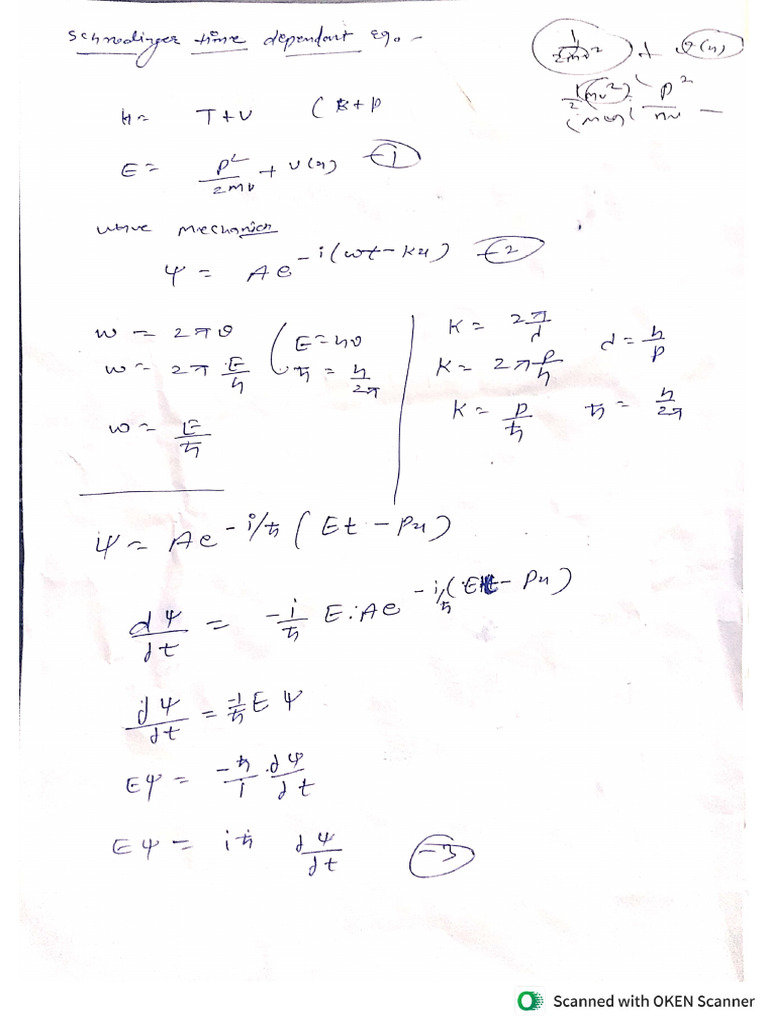 Schrodinger time dependant eq. -
1/2mv² + v(x)
1/2 (mv²) p²
H = T + V (K + P
E = p²/2m + V(x) -1
wave mechanics
ψ = Ae^-i(wt - kx) -2
w = 2πν
w = 2π E/h
w = E/ħ
E = hν
ħ = h/2π
K = 2π/λ
K = 2π p/h
K = p/ħ
λ = h/p
ħ = h/2π
ψ = Ae^-i/ħ (Et - Px)
dψ/dt = -i/ħ E. Ae^-i/ħ (Et - Px)
dψ/dt = -i/ħ E ψ
Eψ = -ħ/i . dψ/dt
Eψ = iħ dψ/dt -3
Scanned with OKEN Scanner